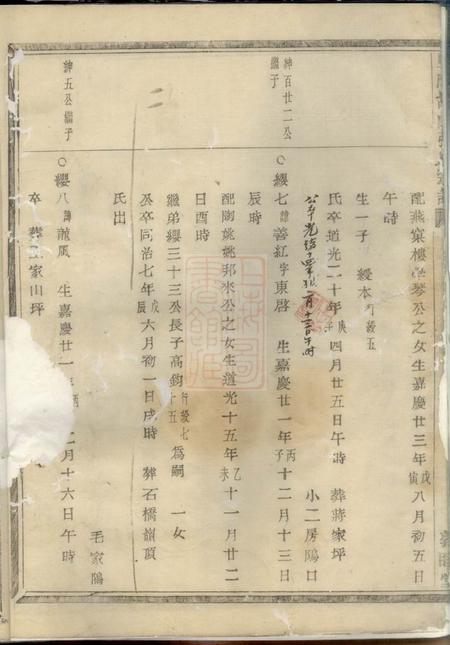 配燕窠樓學琴公之女生嘉慶廿三年戊寅八月初五日
午時
生一子 綬本行綬五
氏卒道光二十年庚子四月廿五日午時 葬蔣家坪
公卒光緒 月十三日午時 小二房隖口
紳百廿二公繼子
○纓七諱善紅字東啓 生嘉慶廿一年丙子十二月十三日
辰時
配陶姚姚邦米公之女生道光十五年乙未十一月廿二
日酉時
繼弟纓三十三公長子高鈞行綬七十五為嗣 一女
公卒同治七年戊辰六月初一日戌時 葬石橋嶺頂
氏出
紳五公繼子
○纓八諱龍鳳 生嘉慶廿一年丙 二月十六日午時
毛家隖
卒 葬 家山坪
上海圖書館藏